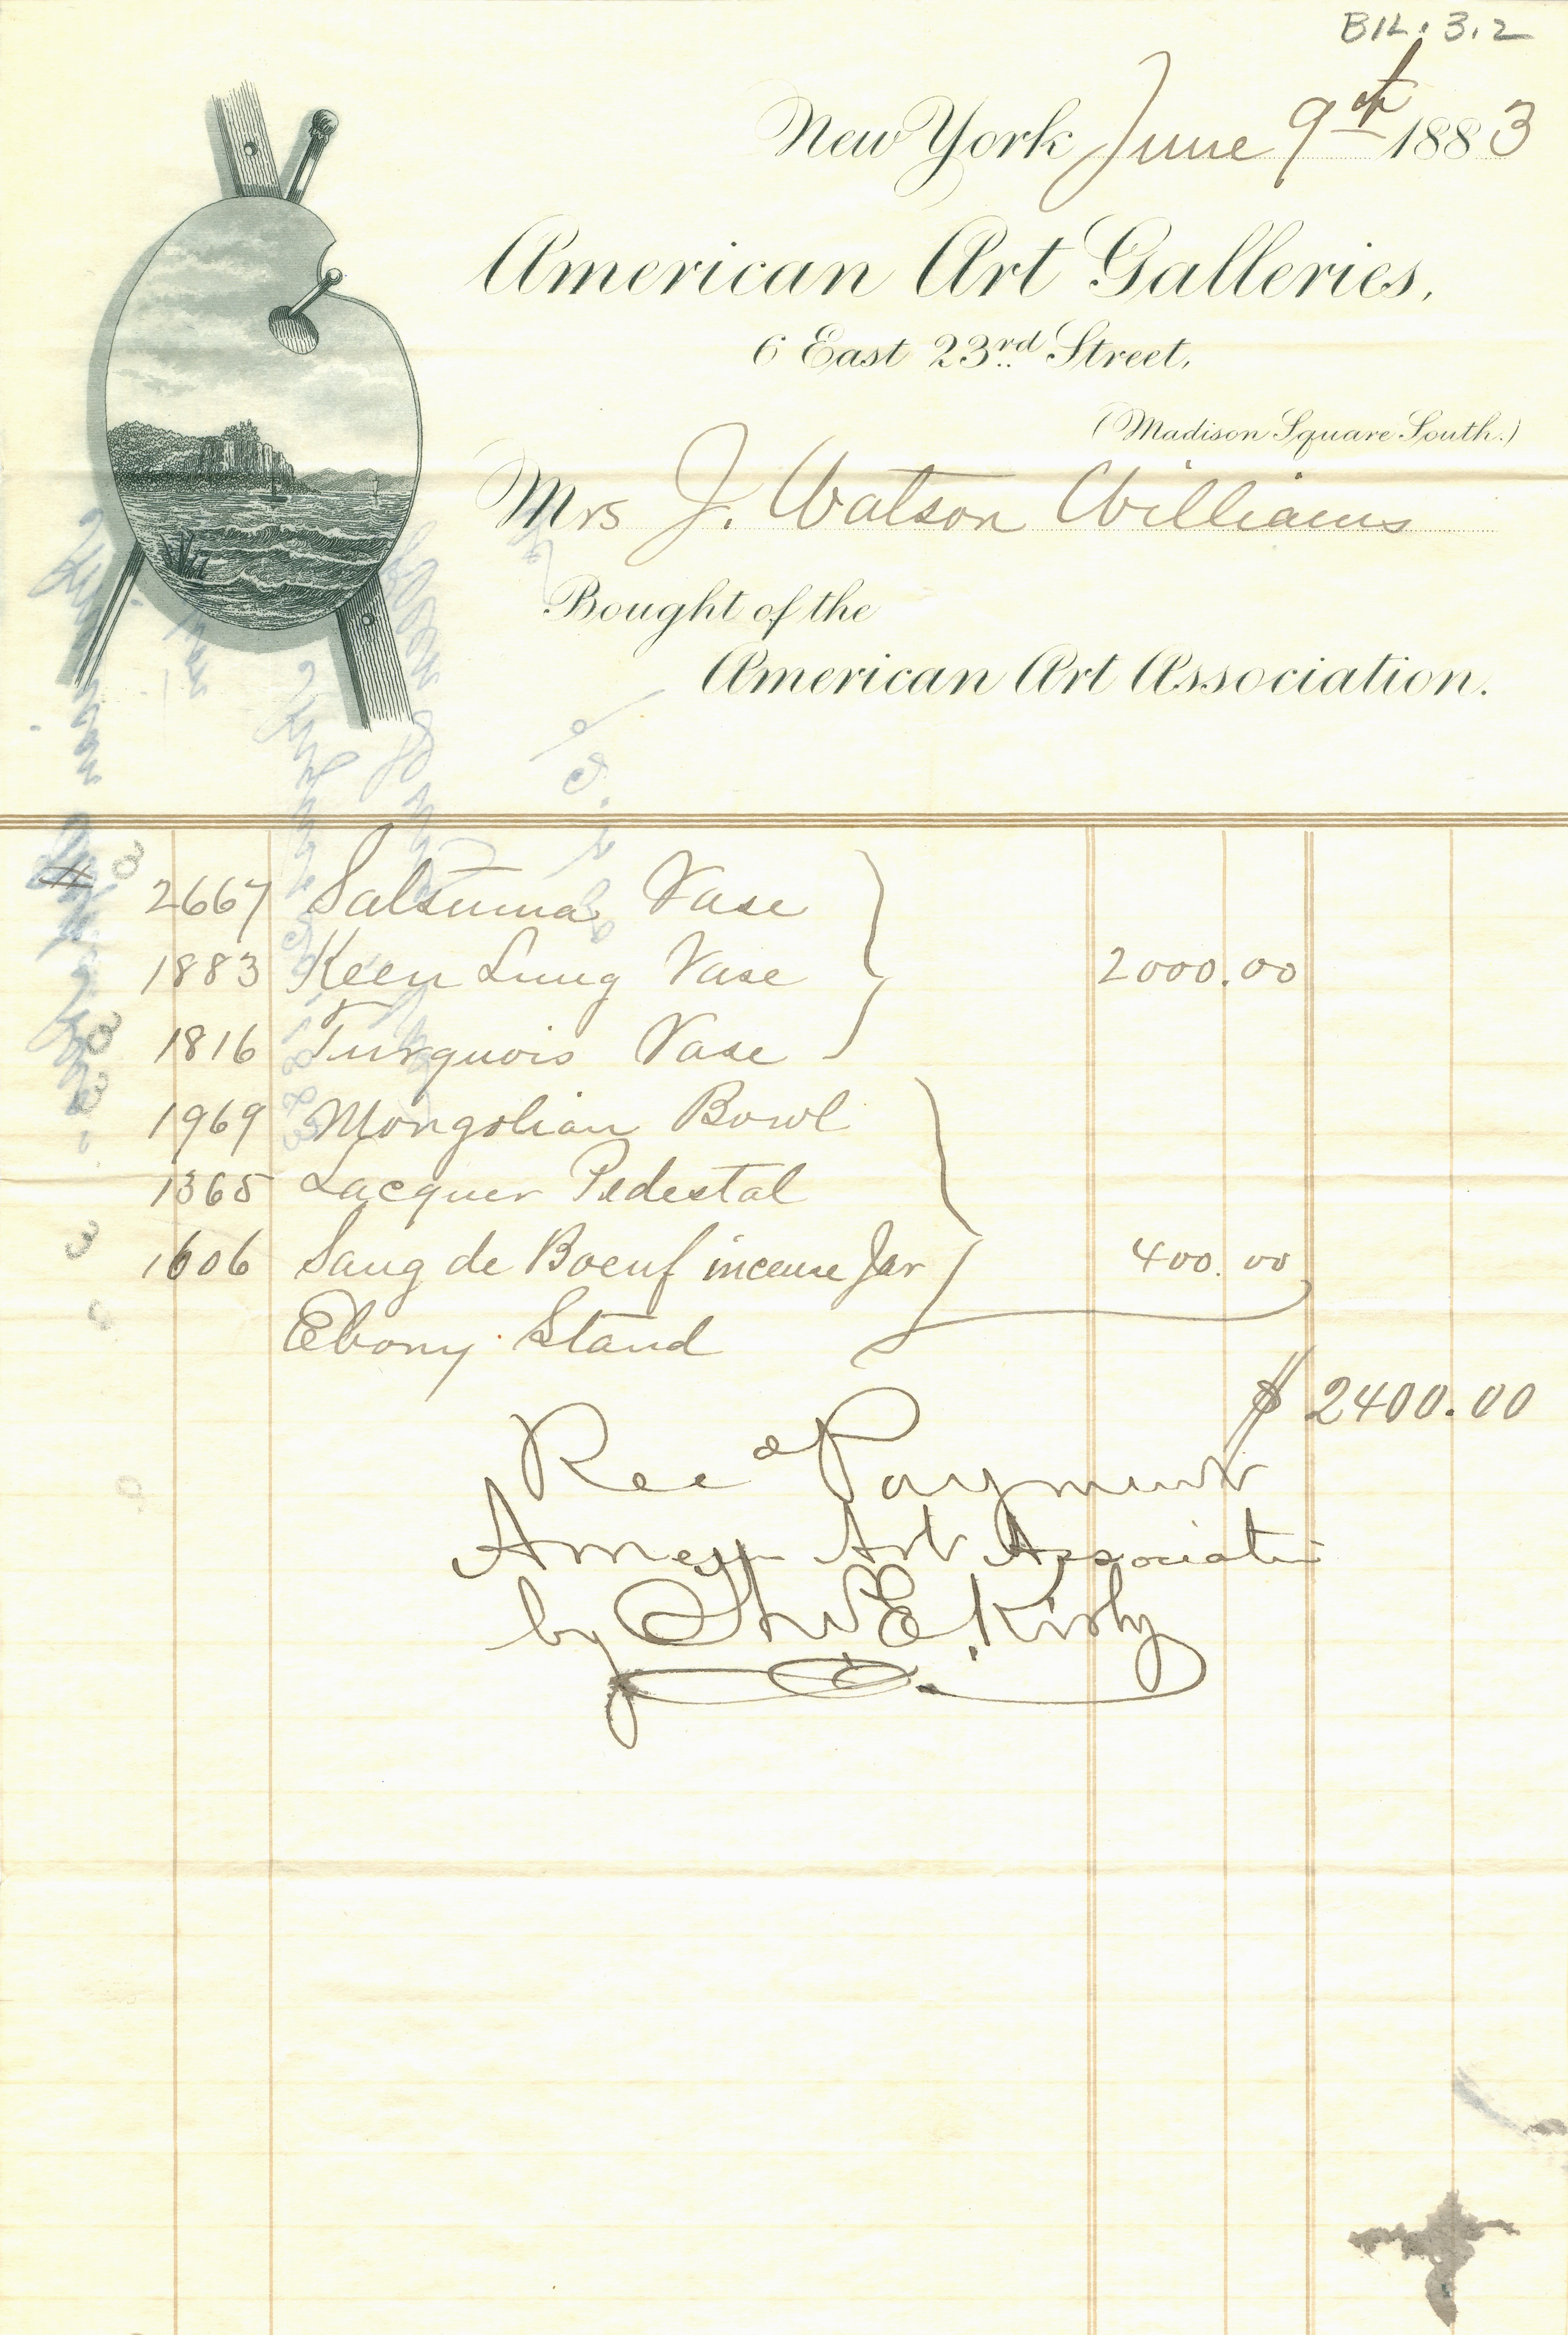 B14.3.2
New York June 9th 1883
American Art Galleries,
6 East 23rd Street,
(Madison Square South.)
Mrs J. Watson Williams
Bought of the
American Art Association.
# 2667 Satsuma Vase
1883 Keen Lung Vase 2000.00
1816 Turquois Vase
1969 Mongolian Bowl
1365 Lacquer Pedestal
1606 Sang de Boeuf incense Jar 400.00
Ebony Stand
$ 2400.00
Recd Payment
Art Association
by E. Kirby